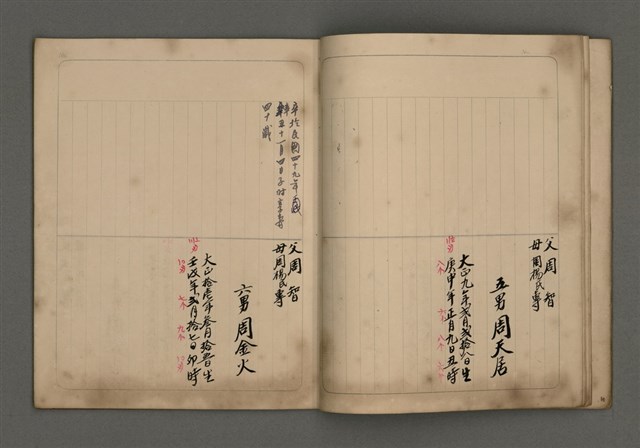 父 周智
母 周楊氏專
五男 周天居
大正九年弍月弍拾八日生
庚申年正月九日丑時
卒於民國四十九年
十一月四日子時享壽
四十歲
父 周智
母 周楊氏專
六男 周金火
大正拾壱年叁月拾五日生
壬戌年弍月拾七日卯時